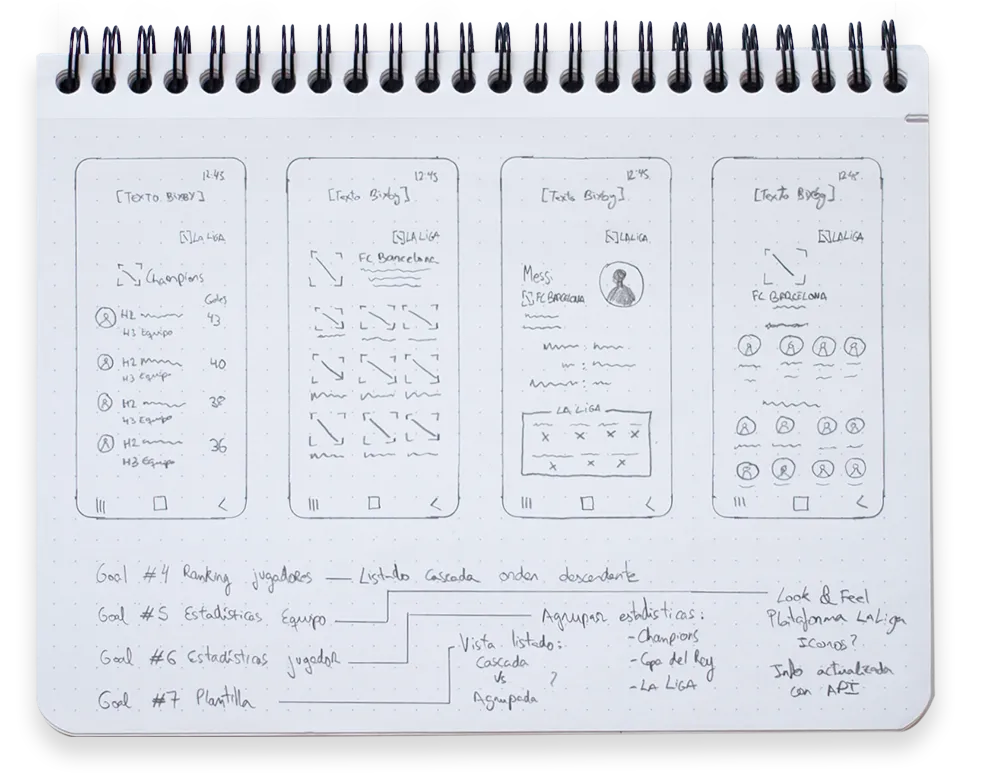 12:45
[TEXTO BIXBY]
LA LIGA
Champions
Goles
H2
43
H3 Equipo
H2
40
H3 Equipo
H2
38
H3 Equipo
H2
36
H3 Equipo
12:45
[Texto Bixby]
LA LIGA
FC Barcelona
12:45
[Texto Bixby]
LALIGA
Messi
FC BARCELONA
LA LIGA
x x x x
x x x
12:45
[Texto Bixby]
LALIGA
FC BARCELONA
Goal #4 Ranking jugadores — Listado Cascada orden descendente
Goal #5 Estadísticas Equipo
Look & Feel
Plataforma LaLiga
Iconos?
Info actualizada
con API
Goal #6 Estadísticas jugador
Agrupar estadísticas:
- Champions
- Copa del Rey
- LA LIGA
Goal #7 Plantilla
Vista listado:
Cascada
vs ?
Agrupada